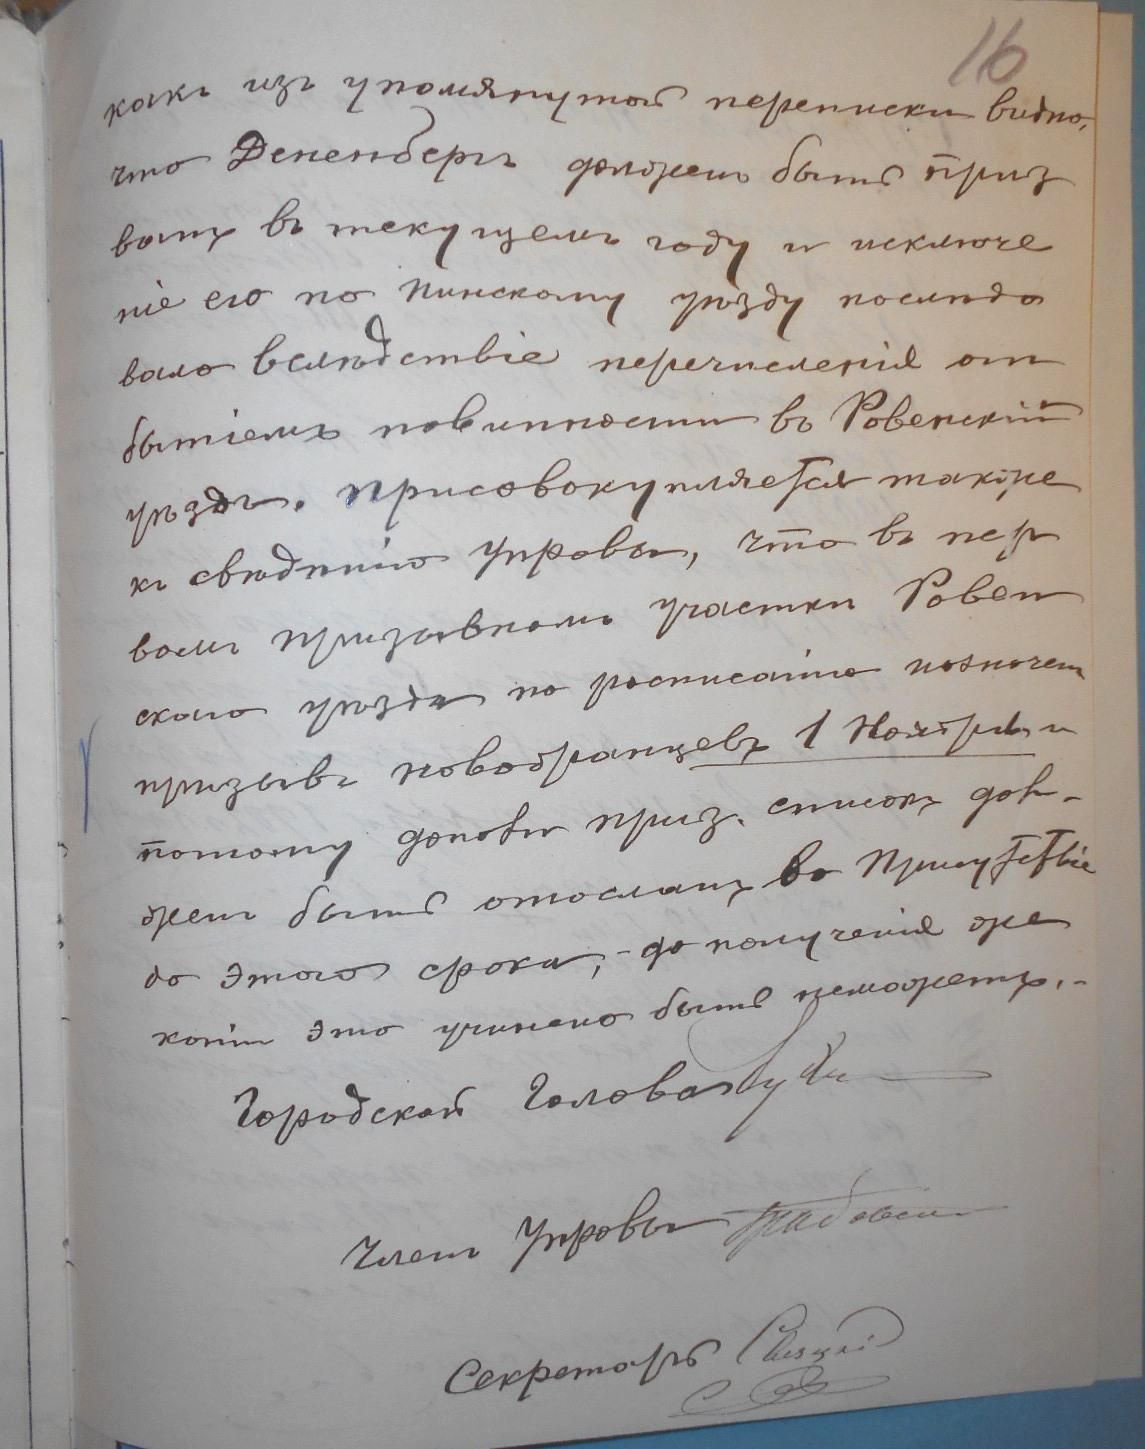 16
какъ изъ упомянутой переписки видно,
что Дененбергъ долженъ быть приз
ванъ въ текущемъ году и исключе
ніе его по Пинскому уѣзду послѣдо
вало вслѣдствіе перечисленія от
бытіемъ повинности въ Ровенскій
уѣздъ. Присовокупляется также
къ свѣдѣнію Управы, что въ пер
вомъ призывномъ участкѣ Ровен
скаго уѣзда по росписанію назначенъ
призывъ новобранцевъ 1 Ноября и
потому допов. приз. списокъ дол-
женъ быть отосланъ во Присутствіе
до этого срока, - до полученія же
копіи это учинено быть неможетъ. -
Городской Голова
Членъ Управы
Секретарь